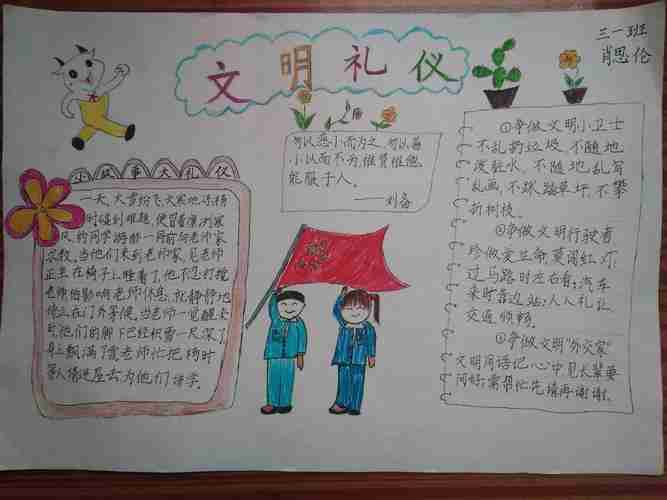 文明礼仪
三一班
肖思伦
小故事大礼仪
一天,大雪纷飞,大家地
时碰到难题,便冒着凛冽寒
风,约同学游酢一同前向老师家
求教,当他们来到老师家,见老师
正坐在椅子上睡着了,他不忍打搅
老师怕影响老师休息,就静静地
侍立在门外等候,当老师一觉醒来
时,他们的脚下已经积雪一尺深了,
身上飘满了雪老师忙把杨时
等人请进屋去为他们讲学。
勿以恶小而为之,勿以善
小以而不为,惟贤惟德,
能服于人。
——刘备
①争做文明小卫士
不乱扔垃圾,不随地
泼脏水,不随地乱写
乱画,不踩踏草坪,不攀
折树枝。
②争做文明行驶者
珍做爱生命,莫闯红灯
过马路时左右看,汽车
来时靠边站;人人礼让
交通顺畅。
③争做文明"外交家"
文明用语记心中见长辈要
问好需帮忙先请再谢谢。